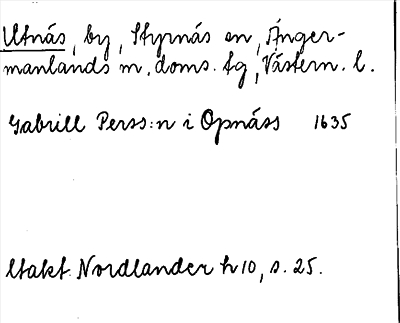 Utnäs, by, Styrnäs sn, Ånger-
manlands m. doms. tg, Västern. l.
Gabrill Perss:n i Opnäss 1635
Utakt Nordlander h 10, s. 25.